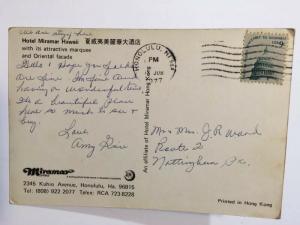 We are staying here
Hotel Miramar Hawaii 夏威夷美麗華大酒店
with its attractive marquee
and Oriental facade
Hello I hope you folks
are fine. We're fine and
having a wonderful time
It's a beautiful place
so much to see &
buy.
Love
Amy
Miramar
2345 Kuhio Avenue, Honolulu, Ha. 96815
Tel: (808) 922 2077 Telex: RCA 723-8228
An affiliate of Hotel Miramar Hong Kong
HONOLULU, HI
PM
JUN
1977
9c
Mr & Mrs. J. R. Ward
Route 2
Nottingham Pa.
Printed in Hong Kong